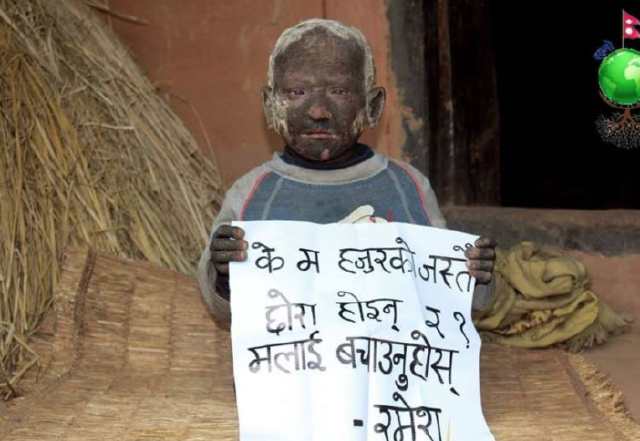 के म हजुरको जस्तै
छोरा होइन् र?
मलाई बचाउनुहोस्
- रमेश